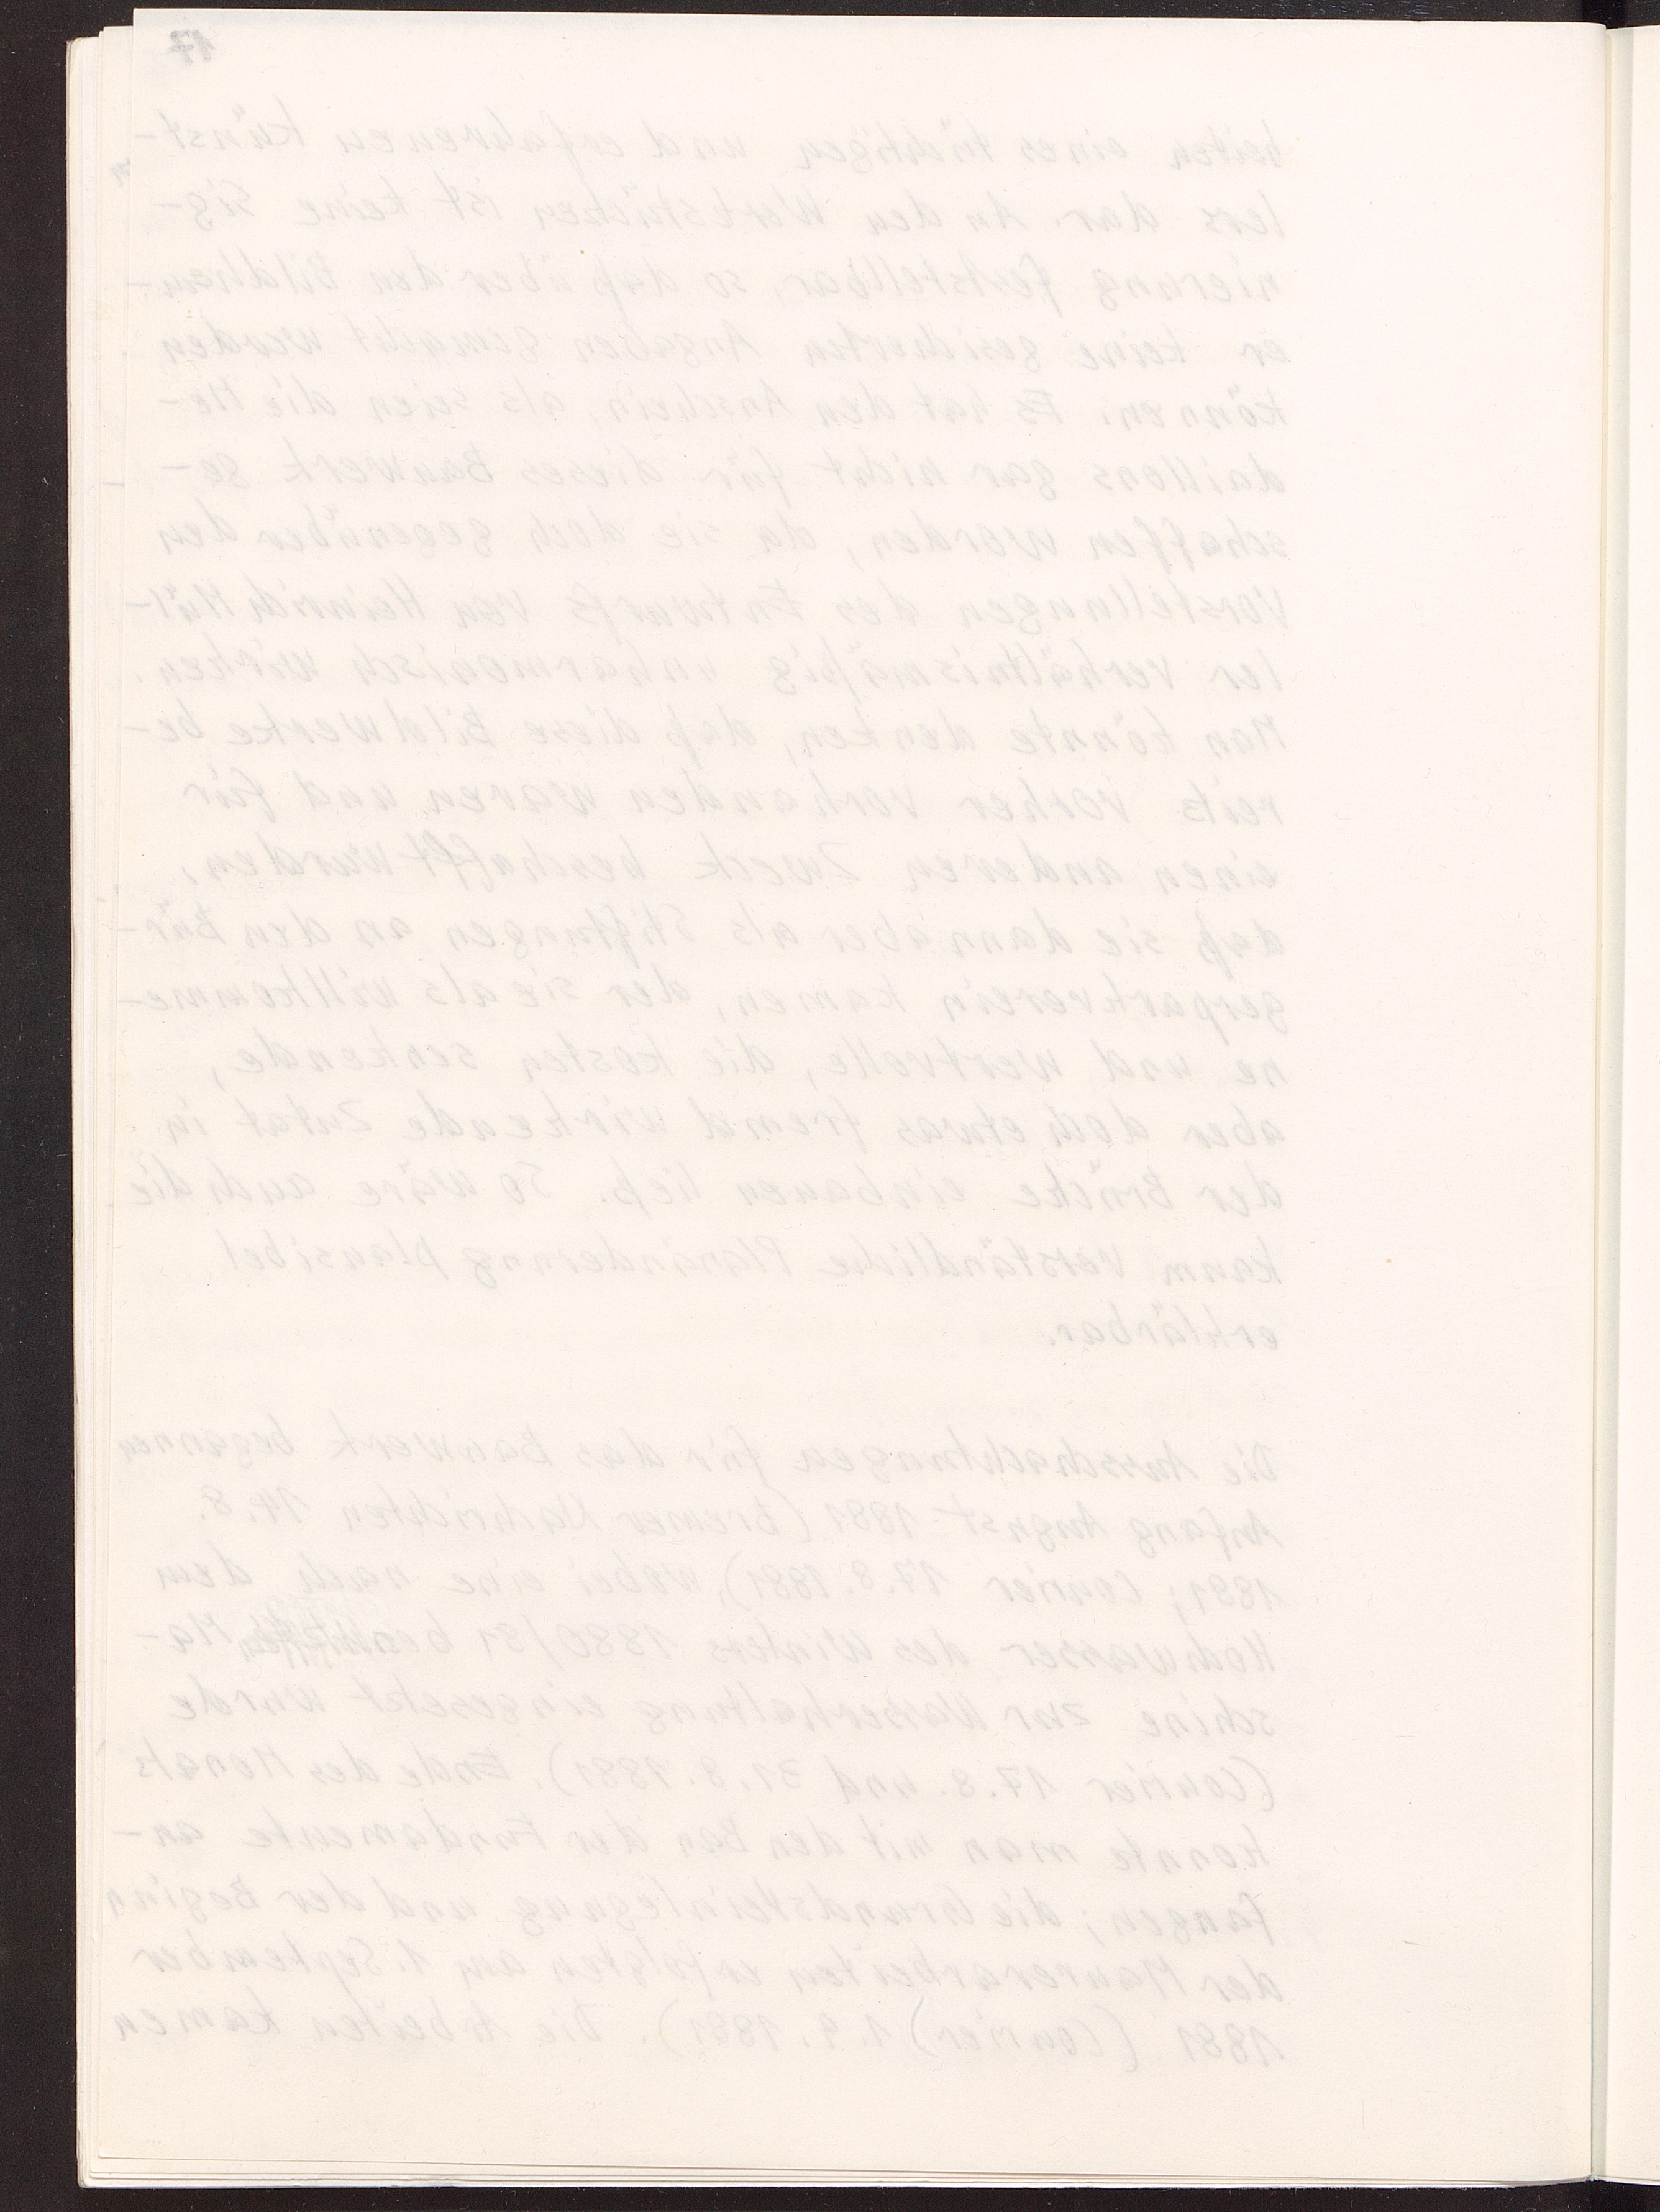 17
beiten eines tüchtigen und erfahrenen Künst-
lers dar. An den Werkstücken ist keine Sig-
nierung feststellbar, so daß über den Bildhau-
er keine gesicherten Angaben gemacht werden
können. Es hat den Anschein, als seien die Me-
daillons gar nicht für dieses Bauwerk ge-
schaffen worden, da sie doch gegenüber den
Vorstellungen des Entwurfs von Heinrich Mül-
ler verhältnismäßig unharmonisch wirken.
Man könnte denken, daß diese Bildwerke be-
reits vorher vorhanden waren und für
einen anderen Zweck beschafft wurden,
daß sie dann aber als Stiftungen an den Bür-
gerparkverein kamen, der sie als willkomme-
ne und wertvolle, die Kosten senkende,
aber doch etwas fremd wirkende Zutat in
der Brücke einbauen ließ. So wäre auch die
kaum verständliche Planänderung plausibel
erklärbar.
Die Ausschachtungen für das Bauwerk begannen
Anfang August 1881 (Bremer Nachrichten 14.8.
1881; Courier 17.8.1881), wobei eine nach dem
Hochwasser des Winters 1880/81 Ma-
schine zur Wasserhaltung eingesetzt wurde
(Courier 17.8. und 31.8.1881). Ende des Monats
konnte man mit den Bau der Fundamente an-
fangen; die Grundsteinlegung und der Beginn
der Maurerarbeiten erfolgten am 1. September
1881 (Courier) 1.9.1881). Die Arbeiten kamen